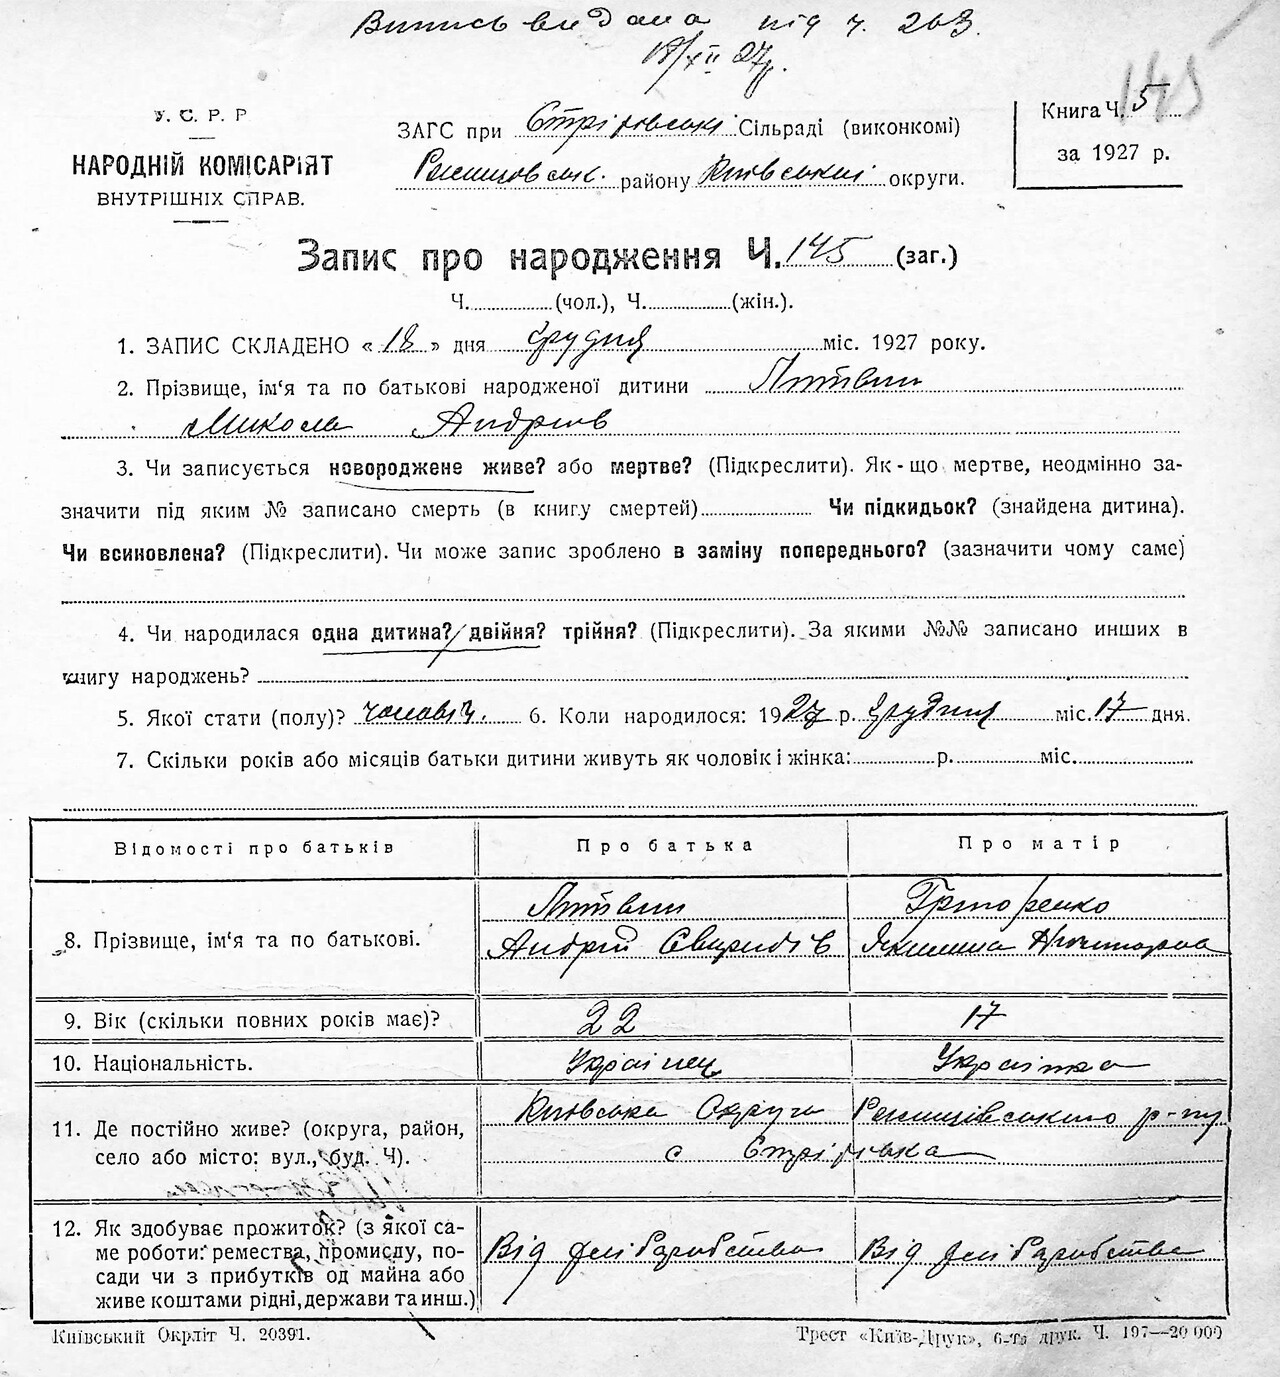 Випись видана під ч. 203.
18/XII 27р.
145
У. С. Р. Р
НАРОДНІЙ КОМІСАРІЯТ
ВНУТРІШНІХ СПРАВ.
ЗАГС при Стрітівські Сільраді (виконкомі)
Ржищівськ. району Київської округи.
Книга Ч. 5
за 1927 р.
Запис про народження Ч. 145 (заг.)
Ч. (чол.), Ч. (жін.).
1. ЗАПИС СКЛАДЕНО « 18 » дня грудня міс. 1927 року.
2. Прізвище, ім‘я та по батькові народженої дитини Литвин
Микола Андріїв
3. Чи записується новороджене живе? або мертве? (Підкреслити). Як-що мертве, неодмінно за-
значити під яким № записано смерть (в книгу смертей) Чи підкидьок? (знайдена дитина).
Чи всиновлена? (Підкреслити). Чи може запис зроблено в заміну попереднього? (зазначити чому саме)
4. Чи народилася одна дитина? двійня? трійня? (Підкреслити). За якими №№ записано инших в
книгу народжень?
5. Якої стати (полу)? чоловіч. 6. Коли народилося: 1927 р. Грудня міс. 17 дня.
7. Скільки років або місяців батьки дитини живуть як чоловік і жінка: р. міс.
Відомості про батьків Про батька Про матір
Литвин Григоренко
8. Прізвище, ім‘я та по батькові. Андрій Свиридів Якилина
9. Вік (скільки повних років має)? 22 17
10. Національність. Українец Українка
Київська Округа Ржищівського р-ну
11. Де постійно живе? (округа, район,
село або місто: вул., буд. Ч). с Стрітівка
12. Як здобуває прожиток? (з якої са-
ме роботи: ремества, промислу, по-
сади чи з прибутків од майна або
живе коштами рідні, держави та инш.)
Від хліборобства Від хліборобства
Київський Окрліт Ч. 20391.
Трест «Київ-Друк», 6-та друк. Ч. 197—20 000